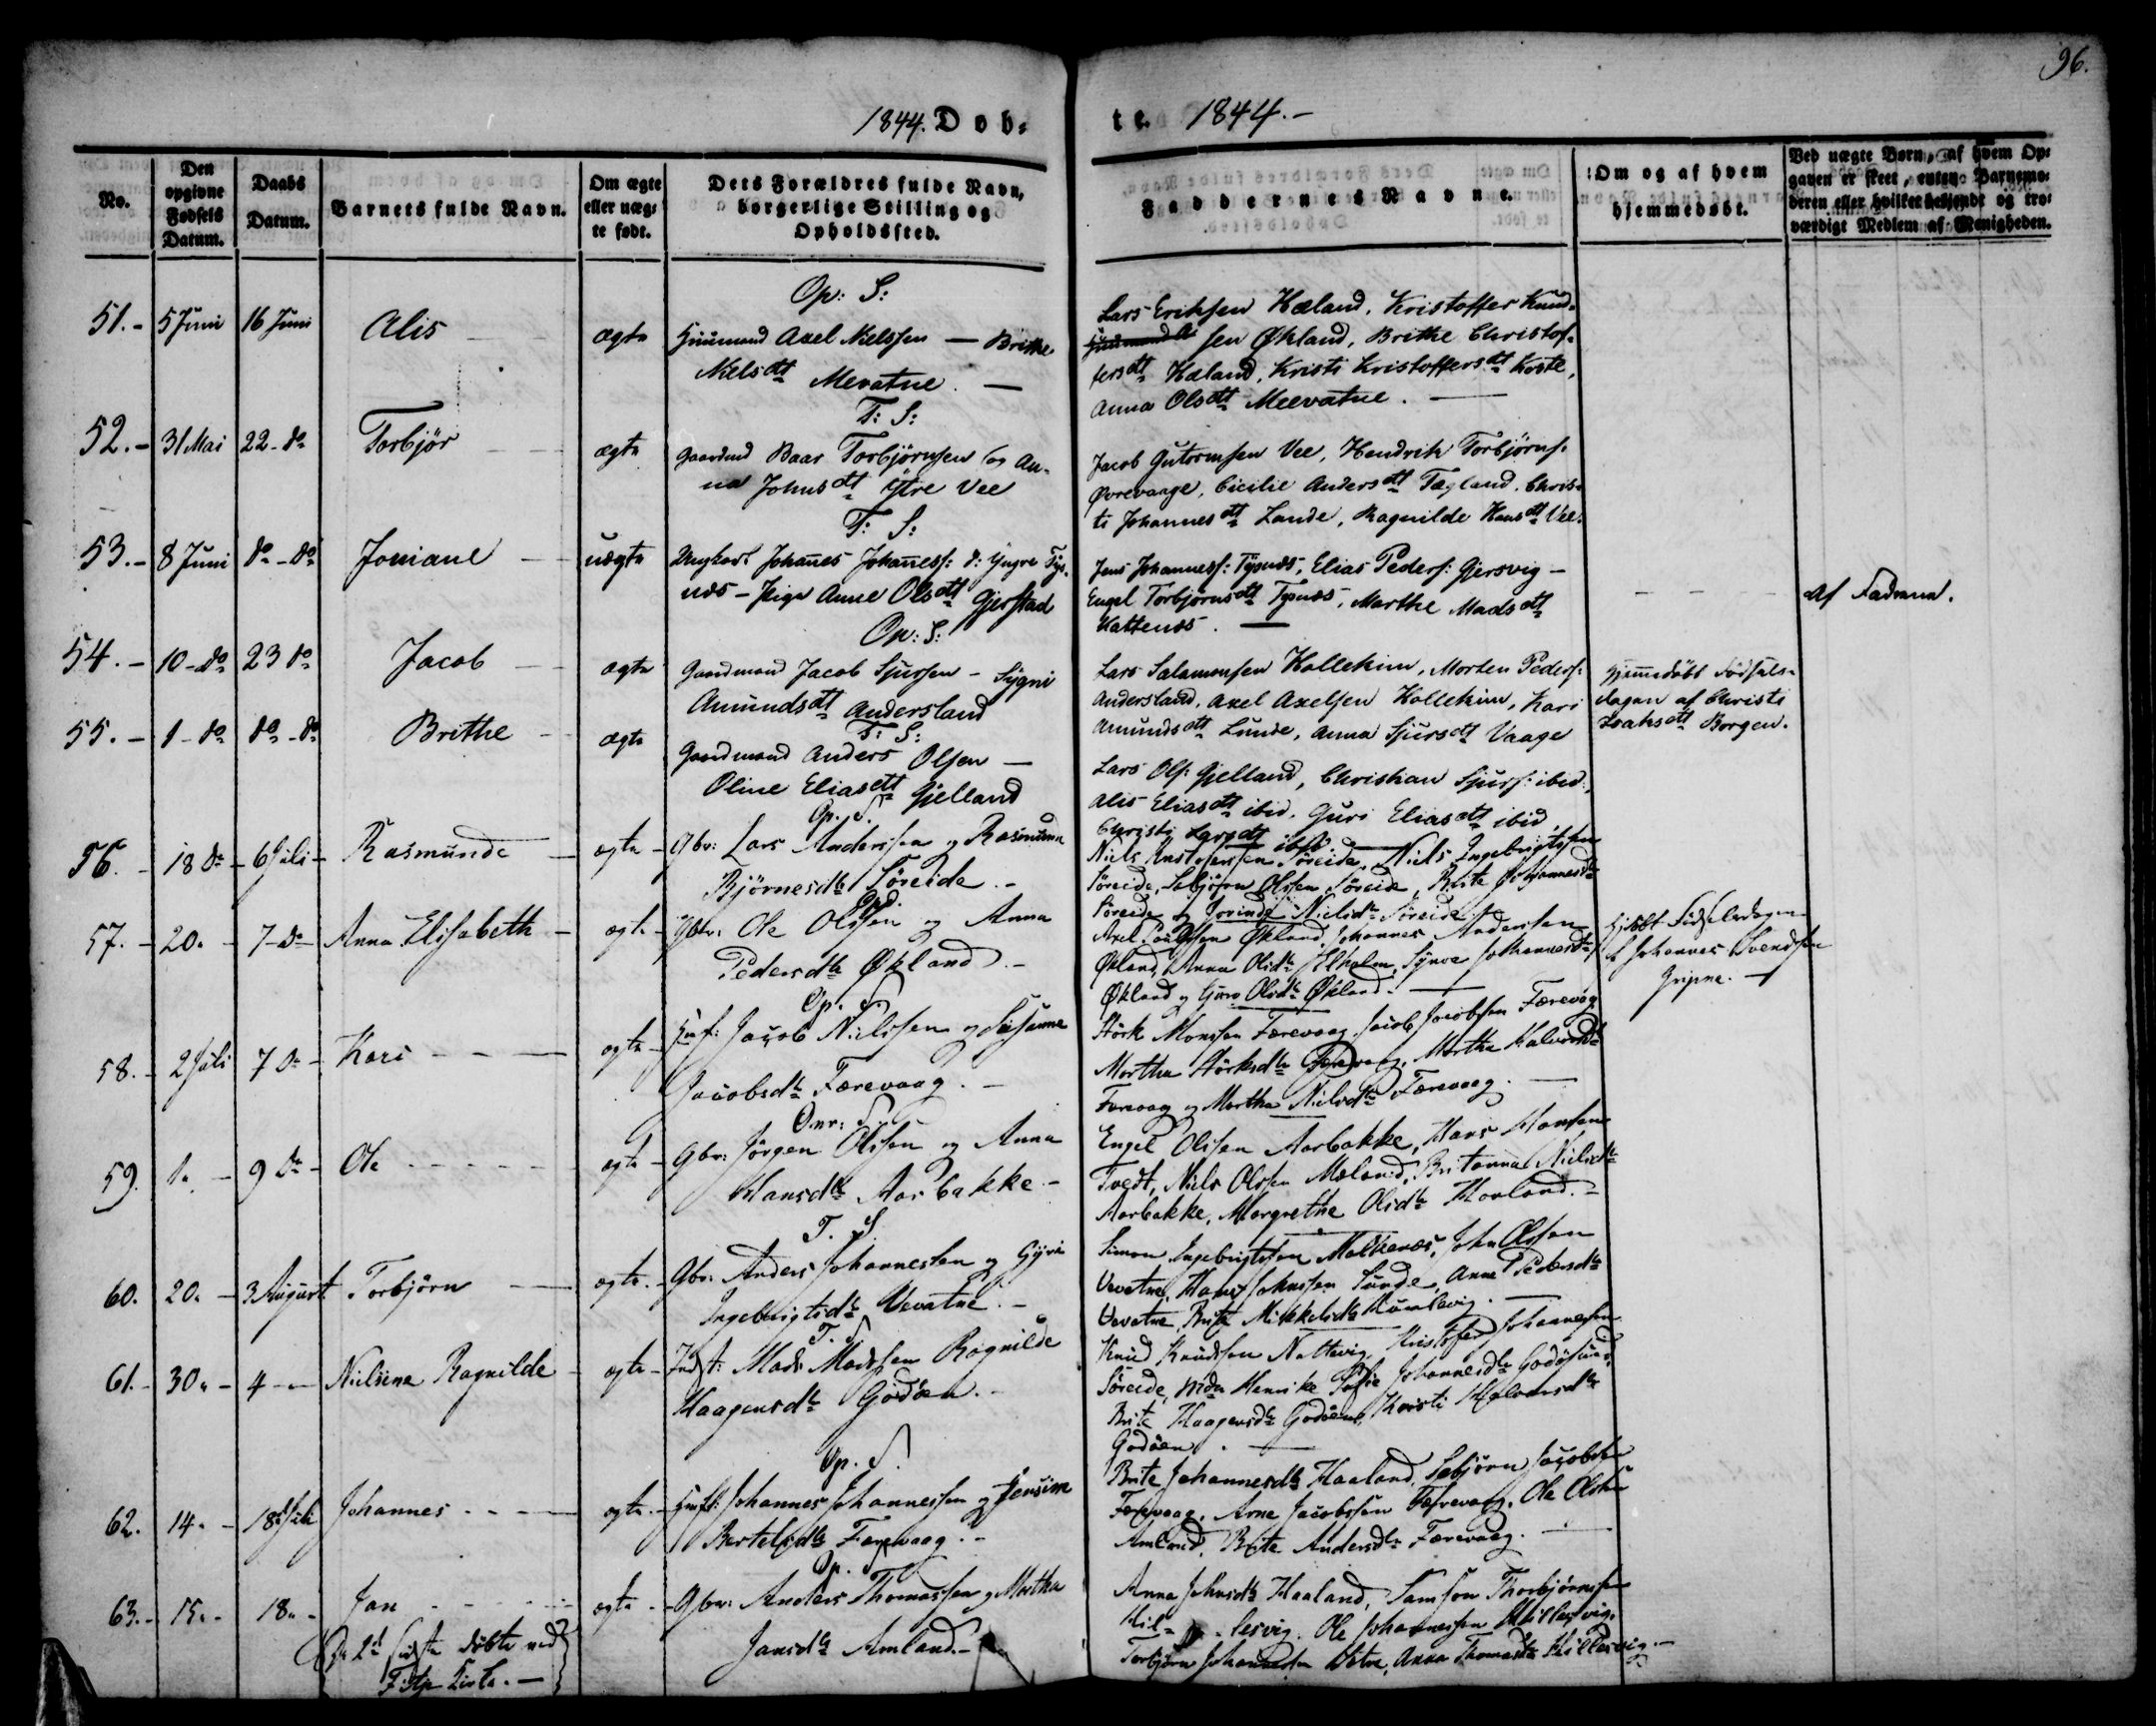 96.
1844. Døb-
te. 1844.-
No.
Den opgivne Fødsels Datum.
Daabs Datum.
Barnets fulde Navn.
Om ægte eller uæg-te født.
Dets Forældres fulde Navn, borgerlige Stilling og Opholdssted.
Faddernes Navne.
Om og af hvem hjemmedøbt.
Ved uægte Børn, af hvem Op-gaven er skeet, enten Barnemo-deren eller hvilket bekjendt og tro-værdigt Medlem af Menigheden.
Op: S:
51.- 5 Juni 16 Juni Alis ægte Huusmand Axel Nielssen — Brithe
Nielsdtr Mevatne. —
Lars Eriksen Hæland, Kristoffer Knud-
sen Økland, Brithe Christof-
fersdtr Hæland, Kristi Kristoffersdtr Koste,
Anna Olsdtr Meevatne. —
T: S:
52.- 31 Mai 22-do Torbjør ægte Gaardmd Baar Torbjørnsen og An-
na Johnsdtr Ytre Vee
Jacob Gutormsen Vee, Hendrik Torbjørns.
Øvrevaage, Cicilie Andersdtr Tægland, Chris-
ti Johannesdtr Lande, Ragnilde Hansdtr Vee.
T: S:
53.- 8 Juni do-do Joniane uægte Ungkarl Johanes Johaness: d: Yngre Tys-
nes - Pige Anne Olsdtr Gjerstad
Jens Johanness: Tysnes, Elias Peders: Gjersvig -
Engel Torbjørnsdtr Tysnes, Marthe Madsdtr
Hattenes. —
af Faderen.
On: S:
54.- 10-do 23 do Jacob ægte Gaardmand Jacob Sjursen - Sygni
Amundsdtr Andersland
Lars Salamonsen Hollekim, Morten Peders:
Andersland, Axel Axelsen Hollekim, Kari
Amundsdtr Lunde, Anna Sjursdtr Vaage
Hjemmedøbt Fødsels-
dagen af Christi
Isaksdtr Borgen.
T: S:
55.- 1-do do-do Brithe ægte Gaardmand Anders Olsen —
Oline Eliasdtr Gjelland
Lars Ols: Gjelland, Christian Sjurs: ibid:,
Alis Eliasdtr ibid, Guri Eliasdtr ibid
Christi Larsdtr ibid.
Op. S.
56.- 18 do- 6 Juli- Rasmunde ægte - Gbr: Lars Anderssen og Rasmunda
Bjørnesdtr Søreide. -
Niels Kristofersen Søreide, Niels Ingebrigtsen
Søreide, Sebjørn Olssen Søreide, Brite Johannesdtr
Søreide og Nielsdtr Søreide
Op. S.
57.- 20. - 7-do- Anna Elisabeth - ægte - Gbr: Ole Olssen og Anna
Pedersdtr Økland. -
Axel Økland, Johannes Andersen
Økland, Anna Olsdtr Elholm, Synve Johannesdtr
Økland og Guro Olsdtr Økland. —
Hjdøbt Fødselsdagen
Johannes Svendsen
Gripne. —
Op. S.
58.- 2 Juli 7 do- Kari - - — ægte - Jacob Nielssen og Susanne
Jacobsdtr Færevaag. -
Størk Monssen Færevaag, Jacob Jacobsen Færevag
Martha Størksdtr Færevaag, Martha Halvorsdtr
Færevaag og Martha Nielsdtr Færevaag. —
Onr: S.
59. do - 9 do- Ole - - - ægte - Gbr: Jørgen Olssen og Anna
Hansdtr Aarbakke -
Engel Olssen Aarbakke, Hans Hansen
Tvedt, Niels Olssen Meland, Britanna Nielsdtr
Aarbakke, Margrethe Olsdtr Haaland. -
T. S.
60. 20. - 3 August Torbjørn - ægte - Gbr: Anders Johannessen og Gyri
Ingebrigtsdtr Uevatne. -
Simon Ingebrigtsen Malkenæs, John Olssen
Uevatne, Hans Johnssen Lunde, Anne Pedersdtr
Uevatne, Brite Mikkelsdtr Humlevig. —
T. S.
61.- 30. - 4 — Nielsine Ragnilde - ægte - Indst: Mads Madssen Ragnilde
Haagensdtr Godøen. -
Knud Knudssen Nattevig, Kristofer Johannessen
Søreide, Mda Henrike Sofie Johannesdtr Godøsund,
Brite Haagensdtr Godøen, Kristi Halvorsdtr
Godøen. —
Op. S.
62. 14. - 18 Juli Johannes - - ægte - Johannes Johannessen og Jensine
Bertelsdtr Færevaag. -
Brite Johannesdtr Haaland, Sebjørn Jacobsen
Færevaag, Arne Jacobssen Færevaag, Ole Olsen
Amland, Brite Andersdtr Færevaag. —
Op. S.
63.- 15. - 18. - Jan - - - ægte - Gbr: Anders Thomassen og Martha
Jansdtr Amland. -
Anna Johnsdtr Haaland, Samson Thorbjørnsen
Hil- - lesvig, Ole Johannessen Hillesvig,
Torbjørn Johannessen Anna Thomasdtr Hillesvig. -
De 2d sidste døbte ved
Fitje Kirke. —